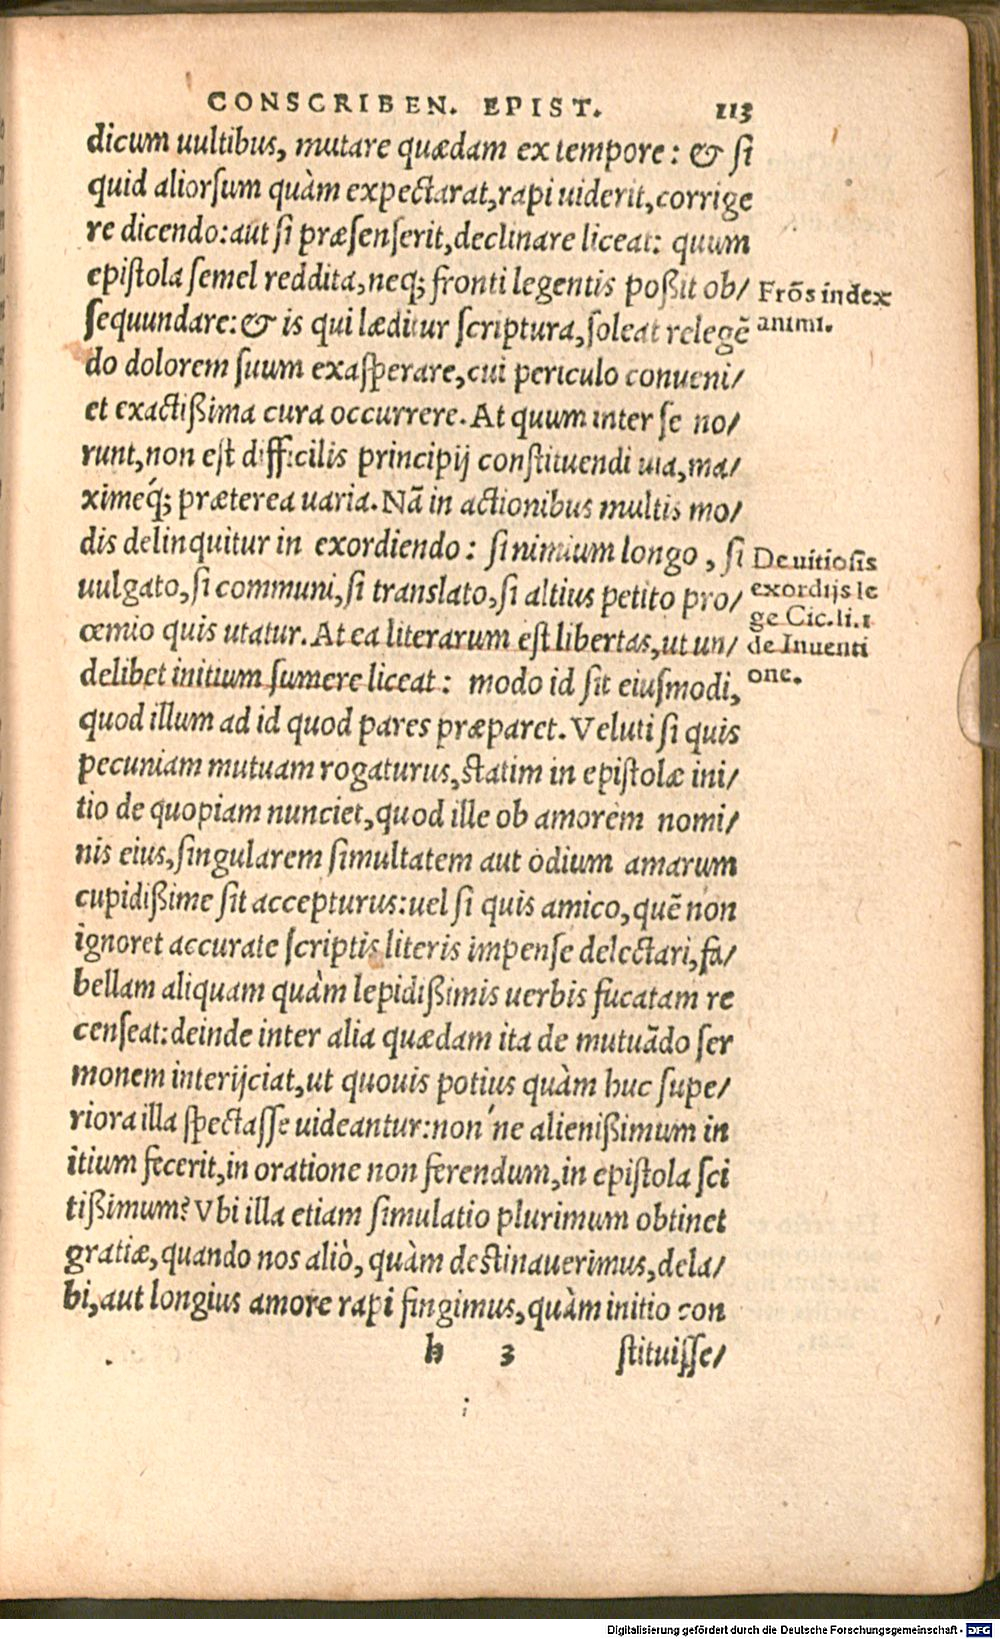 CONSCRIBEN. EPIST. 113
dicum uultibus, mutare quædam ex tempore: & si
quid aliorsum quàm expectarat, rapi uiderit, corrige
re dicendo: aut si præsenserit, declinare liceat: quum
epistola semel reddita, neq; fronti legentis poßit ob/
sequundare: & is qui læditur scriptura, soleat relegẽ
do dolorem suum exasperare, cui periculo conueni/
et exactißima cura occurrere. At quum inter se no/
runt, non est difficilis principij constituendi uia, ma/
ximeq́; præterea uaria. Nã in actionibus multis mo/
dis delinquitur in exordiendo: si nimium longo, si
uulgato, si communi, si translato, si altius petito pro/
œmio quis utatur. At ea literarum est libertas, ut un/
delibet initium sumere liceat: modo id sit eiusmodi,
quod illum ad id quod pares præparet. Veluti si quis
pecuniam mutuam rogaturus, statim in epistolæ ini/
tio de quopiam nunciet, quod ille ob amorem nomi/
nis eius, singularem simultatem aut odium amarum
cupidißime sit accepturus: uel si quis amico, quẽ non
ignoret accurate scriptis literis impense delectari, fa/
bellam aliquam quàm lepidißimis uerbis fucatam re
censeat: deinde inter alia quædam ita de mutuãdo ser
monem interijciat, ut quouis potius quàm huc supe/
riora illa spectasse uideantur: non ́ne alienißimum in
itium fecerit, in oratione non ferendum, in epistola sci
tißimum? Vbi illa etiam simulatio plurimum obtinet
gratiæ, quando nos aliò, quàm destinauerimus, dela/
bi, aut longius amore rapi fingimus, quàm initio con
h 3 stituisse/
Frõs index
animi.
De uitiosis
exordijs le
ge Cic. li. 1
de Inuenti
one.
Digitalisierung gefördert durch die Deutsche Forschungsgemeinschaft - DFG